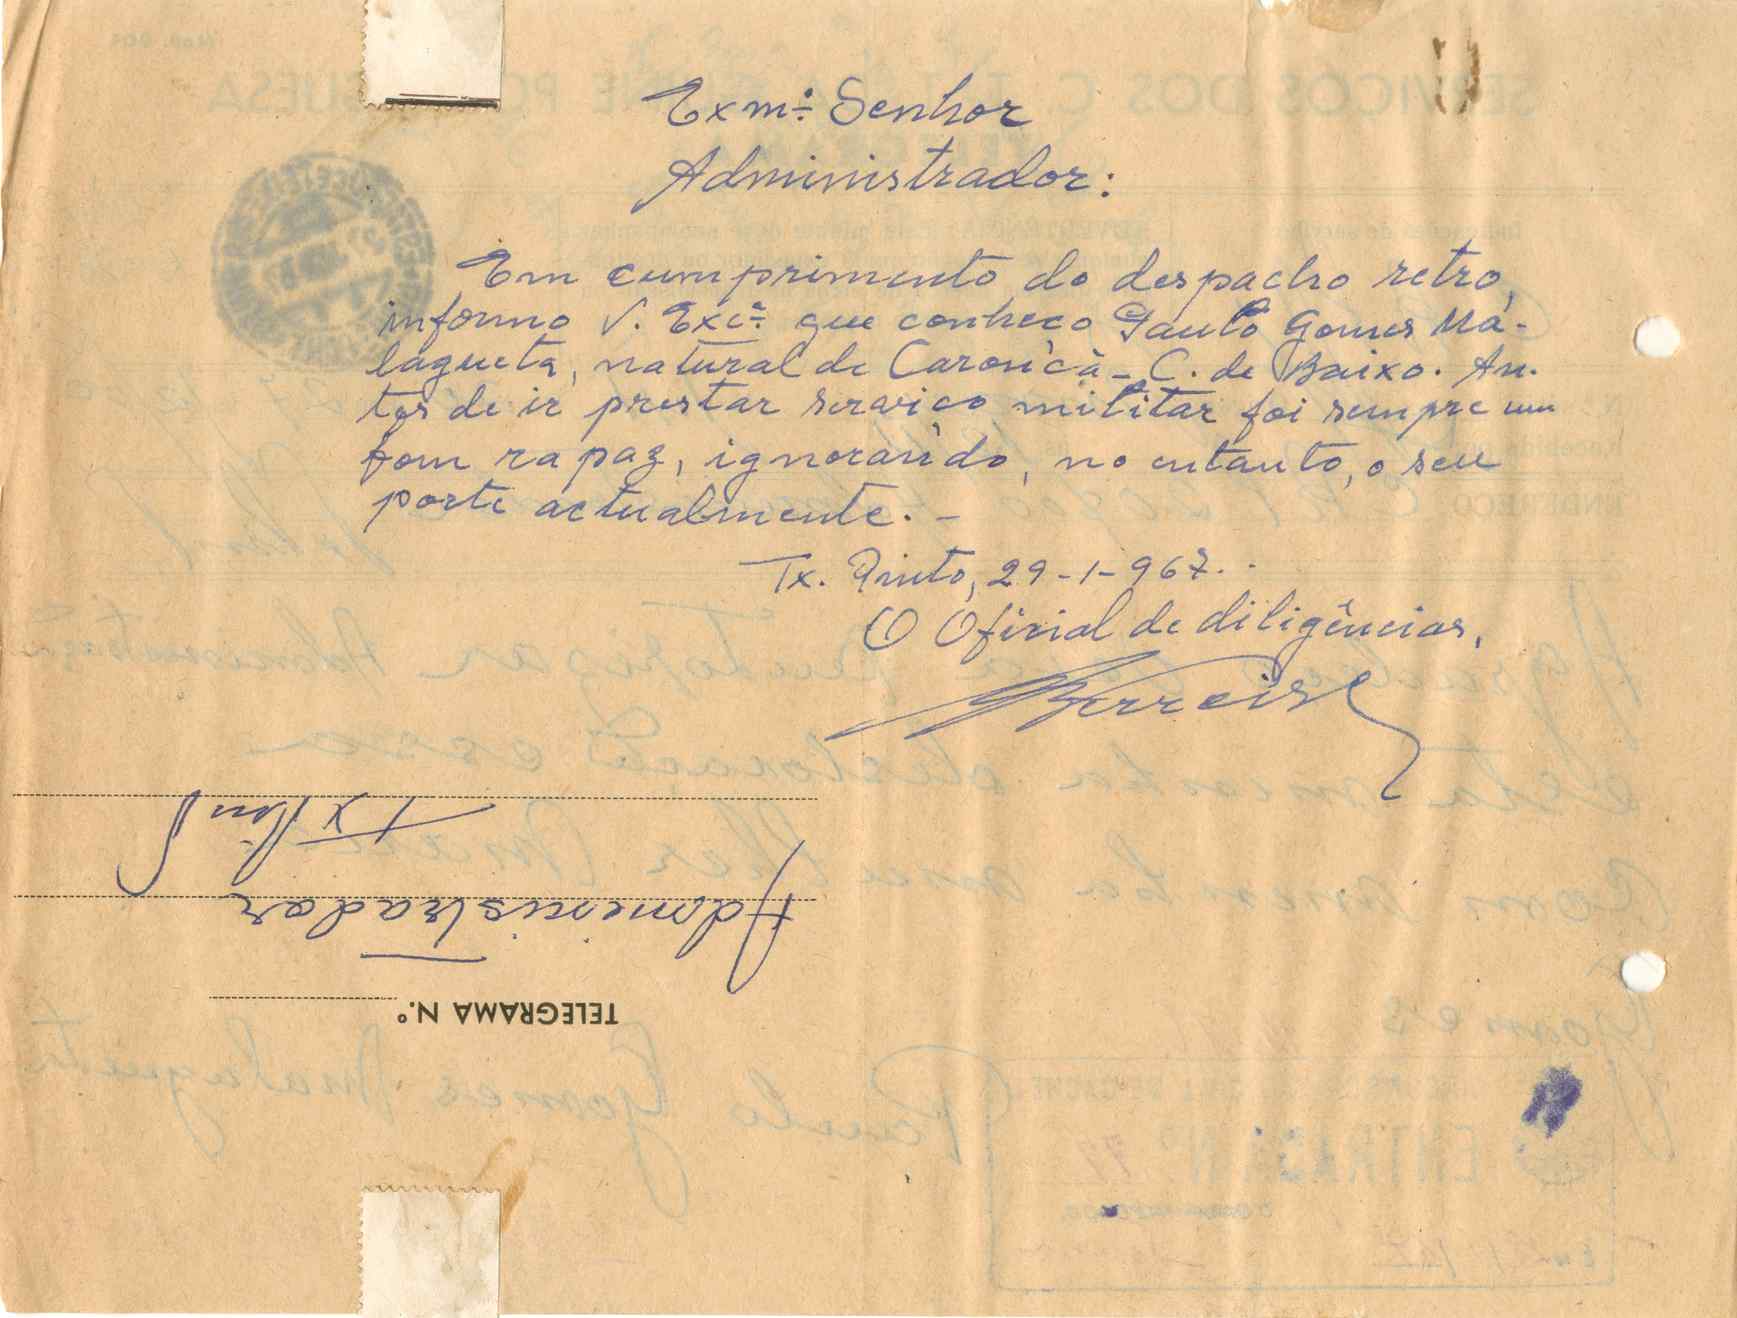 Exmº Senhor
Administrador:
Em cumprimento do despacho retro,
informo V. Excª que conheço Paulo Gomes Ma-
lagueta, natural de Caronca - C. de Baixo. An-
tes de ir prestar serviço militar foi sempre um
bom rapaz, ignorando, no entanto, o seu
porte actualmente. -
Tx. Pinto, 29-1-967.
O Oficial de diligências,
TELEGRAMA N.º
Administrador
Tx